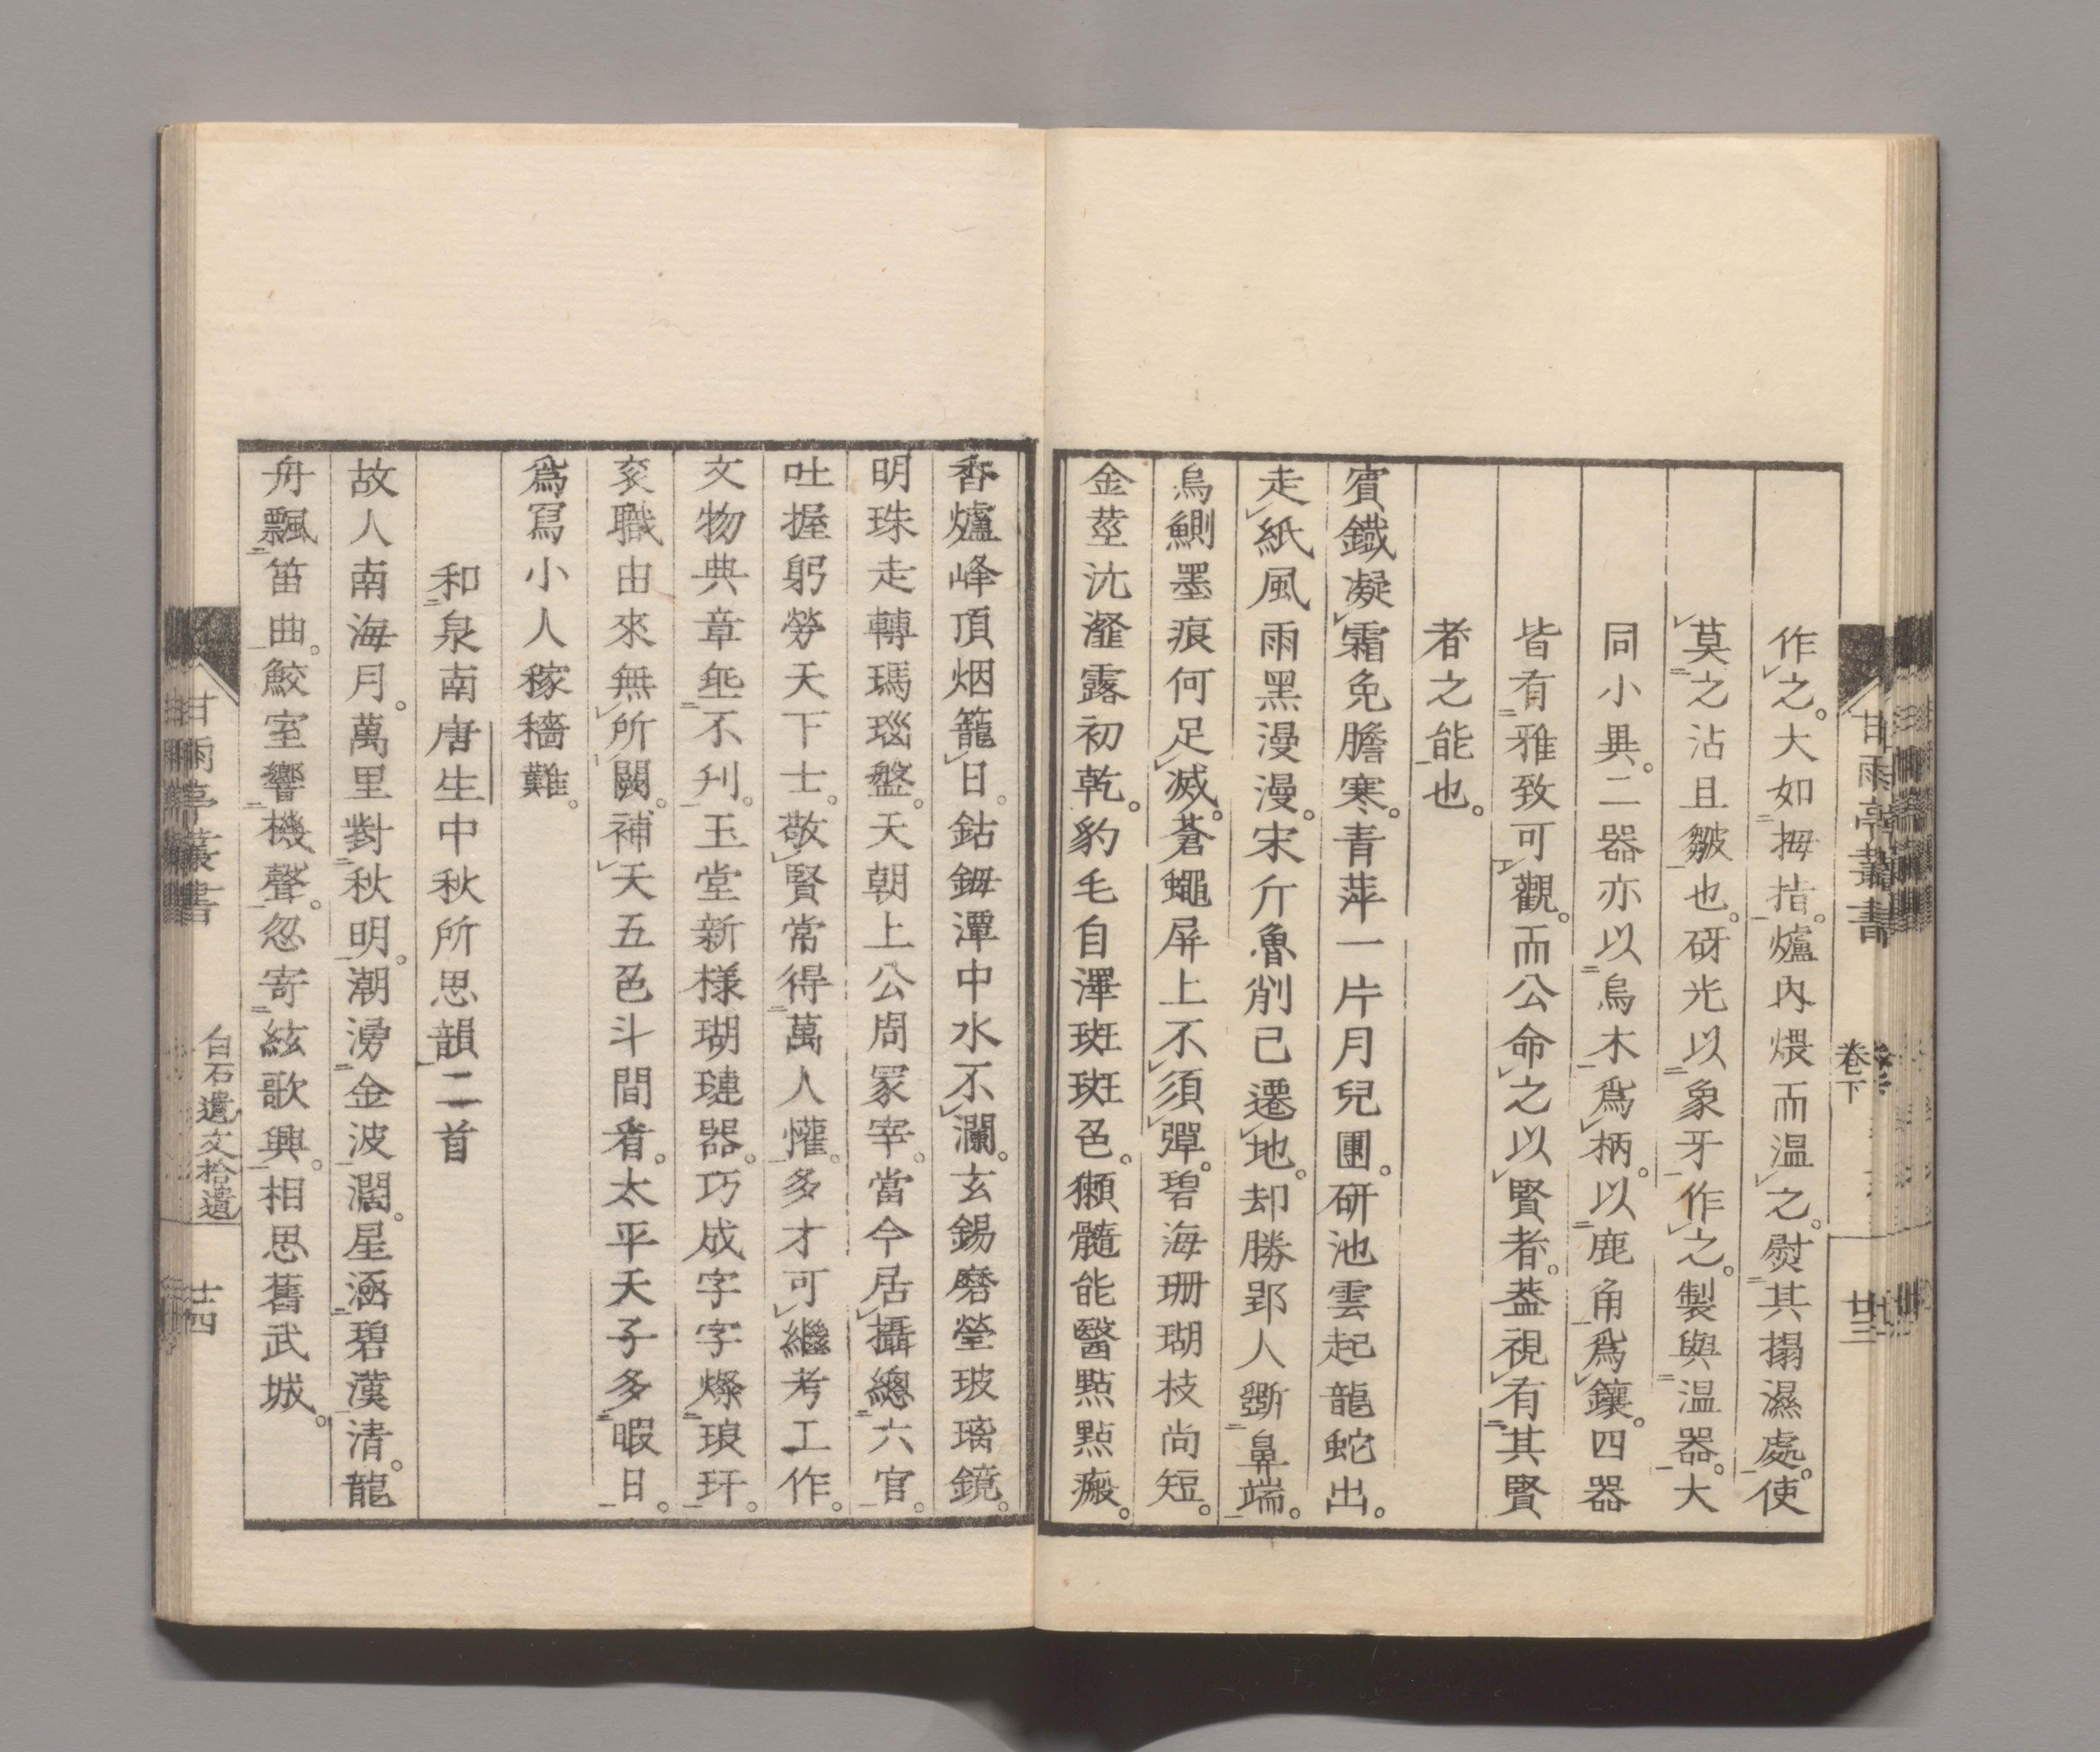 作之。大如拇指。爐內煨而溫之。熨其搨濕處。使
莫之沾且皺也。砑光以象牙作之。製與溫器。大
同小異。二器亦以烏木爲柄。以鹿角爲鑲。四器
皆有雅致可觀。而公命之以賢者。葢視有其賢
者之能也。
賓鐵凝霜兔膽寒。青萍一片月兒團。研池雲起龍蛇出。
走紙風雨黑漫漫。宋斤魯削已遷地。却勝郢人斵鼻端。
烏鰂墨痕何足滅。蒼蠅屏上不須彈。碧海珊瑚枝尚短。
金莖沆瀣露初乾。豹毛自澤斑斑色。獺髓能醫點點瘢。
甘雨亭叢書
卷下
廿三
香爐峰頂烟籠日。鈷鉧潭中水不瀾。玄錫磨瑩玻璃鏡。
明珠走轉瑪瑙盤。天朝上公周冢宰。當今居攝總六官。
吐握躬勞天下士。敬賢常得萬人懽。多才可繼考工作。
文物典章垂不刋。玉堂新樣瑚璉器。巧成字字燦琅玕。
袞職由來無所闕。補天五色斗間看。太平天子多暇日。
爲寫小人稼穡難。
和泉南唐生中秋所思韻二首
故人南海月。萬里對秋明。潮湧金波濶。星涵碧漢清。龍
舟飄笛曲。鮫室響機聲。忽寄絃歌興。相思舊武城。
甘雨亭叢書
白石遺文拾遺
廿四